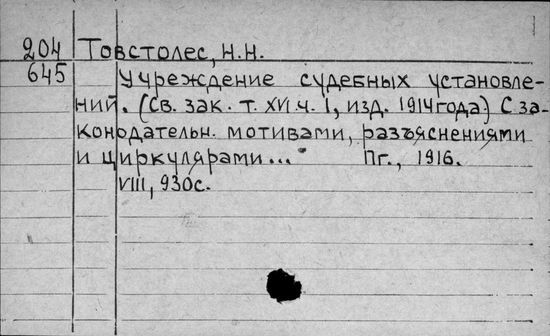 204 Товстолес, Н.Н.
645 Учреждение судебных установле-
ний. (Св. зак. т. XVI ч. 1, изд. 1914года.) С за-
конодательн. мотивами, разъяснениями
и циркулярами... Пг., 1916.
VIII, 930с.